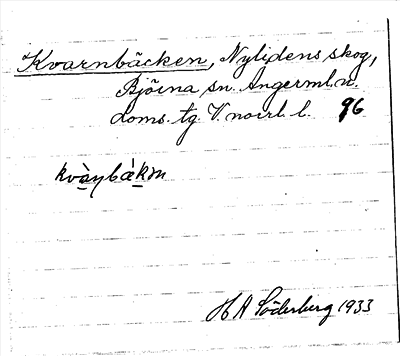 Kvarnbäcken, Nylidens skog,
Björna sn. Ångerml. n.
doms. tg. V. norrl. l. 96
kvànybäkm
H A Söderberg 1933